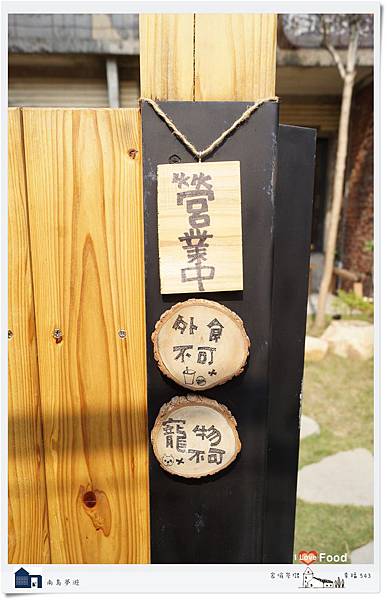 營業中
外食
不可
寵物
不可
I Love Food
南島夢遊
幸福543